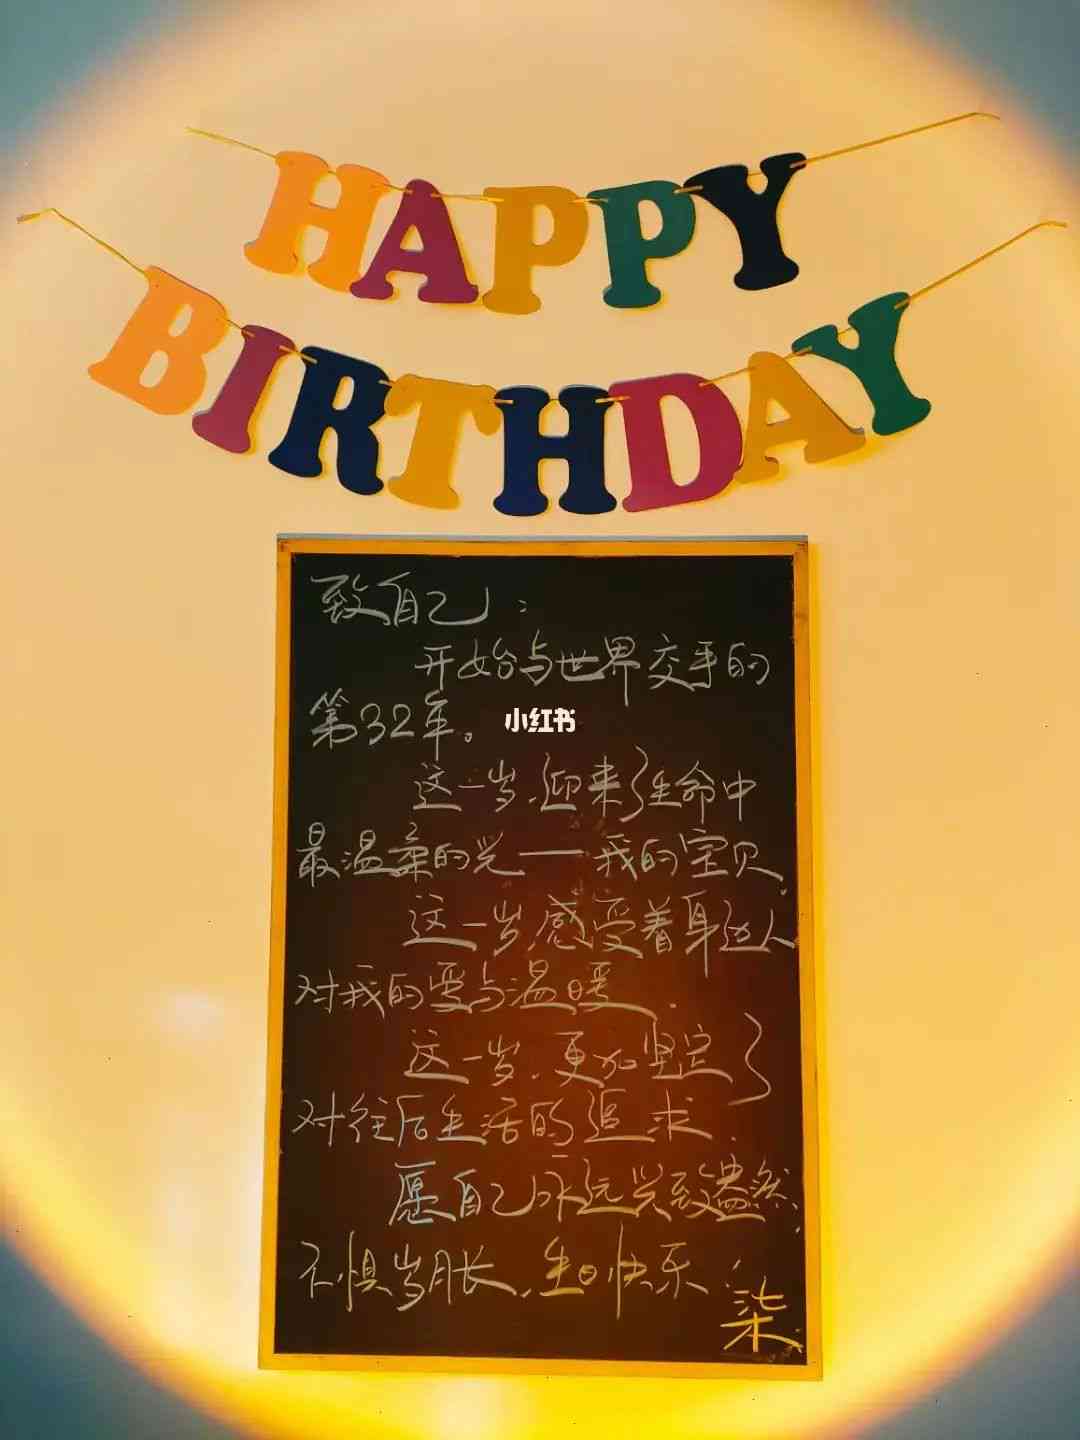 HAPPY
BIRTHDAY
致自己：
开始与世界交手的
第32年。
小红书
这一岁,迎来了生命中
最温柔的光——我的宝贝.
这一岁,感受着身边人
对我的爱与温暖.
这一岁,更加坚定了
对往后生活的追求.
愿自己永远兴致盎然,
不惧岁月长,生日快乐!
柒